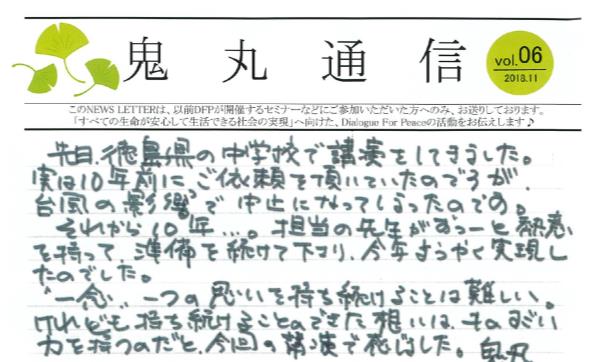 鬼丸通信
vol.06
2018.11
このNEWS LETTERは、以前DFPが開催するセミナーなどにご参加いただいた方へのみ、お送りしております。
「すべての生命が安心して生活できる社会の実現」へ向けた、Dialogue For Peaceの活動をお伝えします♪
先日、徳島県の中学校で講演をしてきました。
実は10年前にご依頼を頂いていたのですが、
台風の影響で中止になってしまったのです。
それから10年…。担当の先生がずっーと熱意
を持って、準備を続けて下さり、今年ようやく実現し
たのでした。
"一念" 一つの思いを持ち続けることは難しい。
けれども持ち続けることのできた想いは、ものすごい
力を持つのだと、今回の講演で感じました。鬼丸